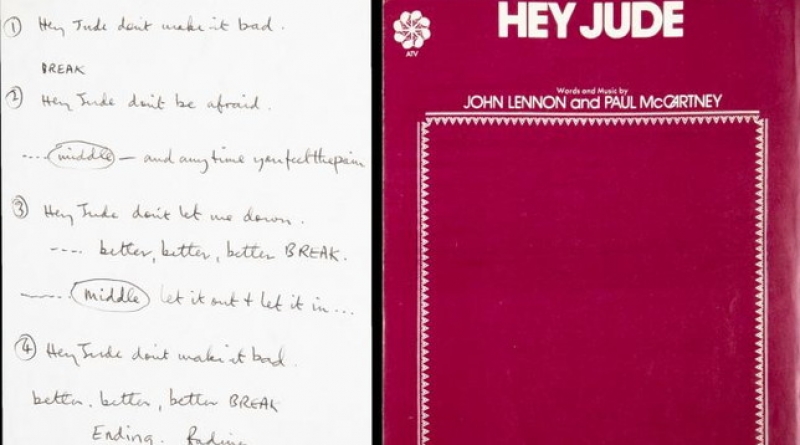 ① Hey Jude don't make it bad.
BREAK
② Hey Jude don't be afraid.
.... middle — and anytime you feel the pain
③ Hey Jude don't let me down.
---- better, better, better BREAK.
middle let it out + let it in...
④ Hey Jude don't make it bad.
better. better, better BREAK
Ending. Fading
ATV
HEY JUDE
Words and Music by
JOHN LENNON and PAUL McCARTNEY